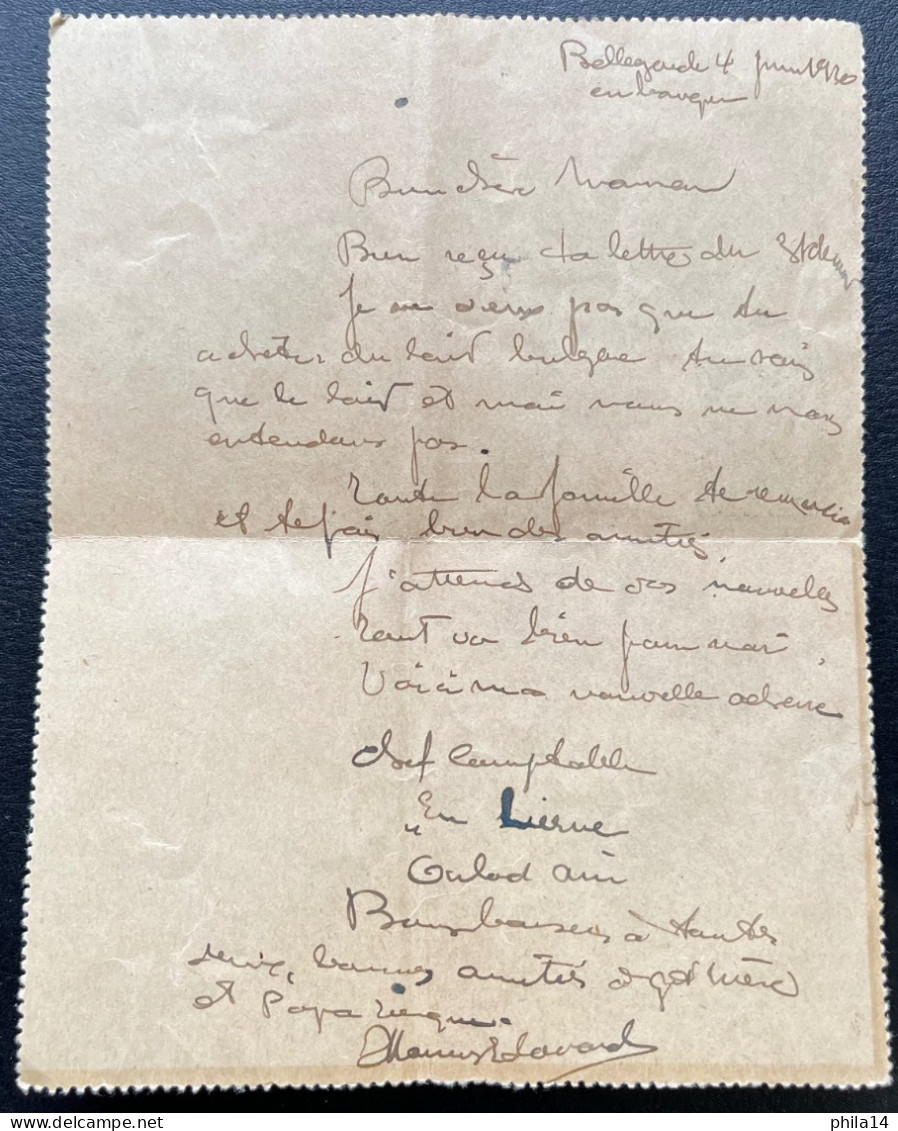 Bellegarde 4 juin 1920
en banque
Bien chère Maman
Bien reçu ta lettre du
Je ne veux pas que tu
achètes du lait bulgare tu sais
que le lait et moi nous ne nous
entendons pas.
Toute la famille te remercie
et te fais bien des amitiés,
J'attends de vos nouvelles
Tout va bien pour moi,
Voici ma nouvelle adresse
chef comptable
"En Lierne"
Culoz Ain
Bons baisers à toutes
deux, bonnes amitiés à
et Papa
Edouard
phila14